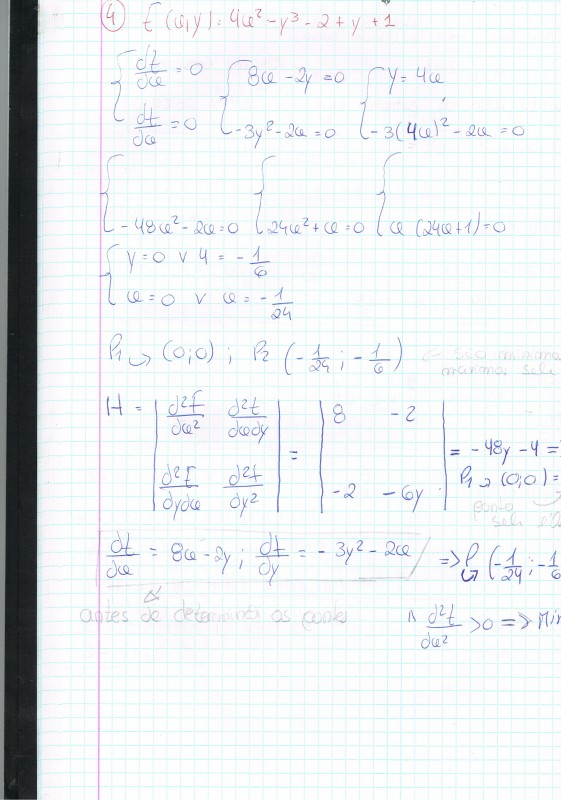 ④ f(x,y): 4x² - y³ - 2 + y + 1
{ df/dx = 0 { 8x - 2y = 0 { y = 4x
df/dy = 0 -3y² - 2x = 0 -3(4x)² - 2x = 0
{ -48x² - 2x = 0 { 24x² + x = 0 { x (24x+1) = 0
{ y = 0 v y = -1/6
x = 0 v x = -1/24
P1 → (0;0) ; P2 (-1/24 ; -1/6) ← são
H = | d²f/dx² d²f/dxdy | = | 8 -2 |
| d²f/dydx d²f/dy² | | -2 -6y | = -48y - 4 =
P1 → (0;0) =
df/dx = 8x - 2y ; df/dy = -3y² - 2x => P (-1/24 ; -1/6
antes de determinar os pontos
∧ d²f/dx² > 0 => Min